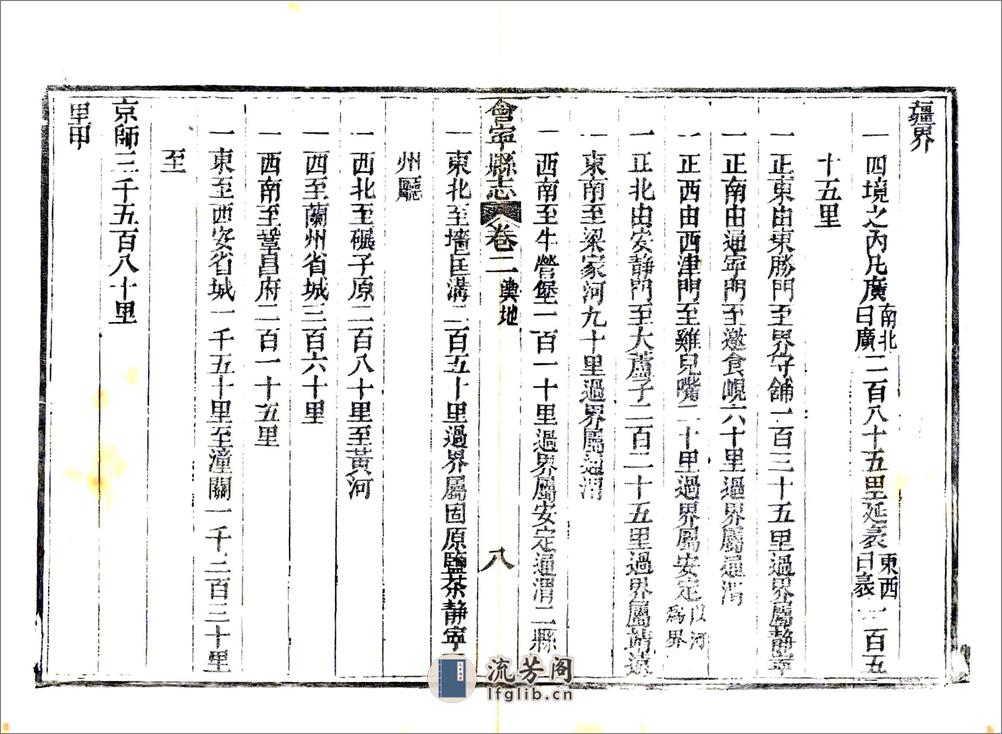 疆界
一四境之內凡廣南北曰廣二百八十五里延袤東西曰袤一百五
十五里
一正東由東勝門至界守舖一百三十五里過界屬靜寧
一正南由通寧門至邀食峴六十里過界屬通渭
一正西由西津門至雞兒嘴二十里過界屬安定以河為界
一正北由安靜門至大蘆子二百二十五里過界屬靖遠
一東南至梁家河九十里過界屬通渭
一西南至牛營堡一百一十里過界屬安定通渭二縣
會寧縣志 卷二 輿地 八
一東北至墻匡溝二百五十里過界屬固原鹽茶靜寧
州廳
一西北至碾子原二百八十里至黃河
一西至蘭州省城三百六十里
一西南至鞏昌府二百一十五里
一東至西安省城一千五十里至潼關一千二百三十里
至
京師三千五百八十里
里甲
流芳阁
lfglib.cn